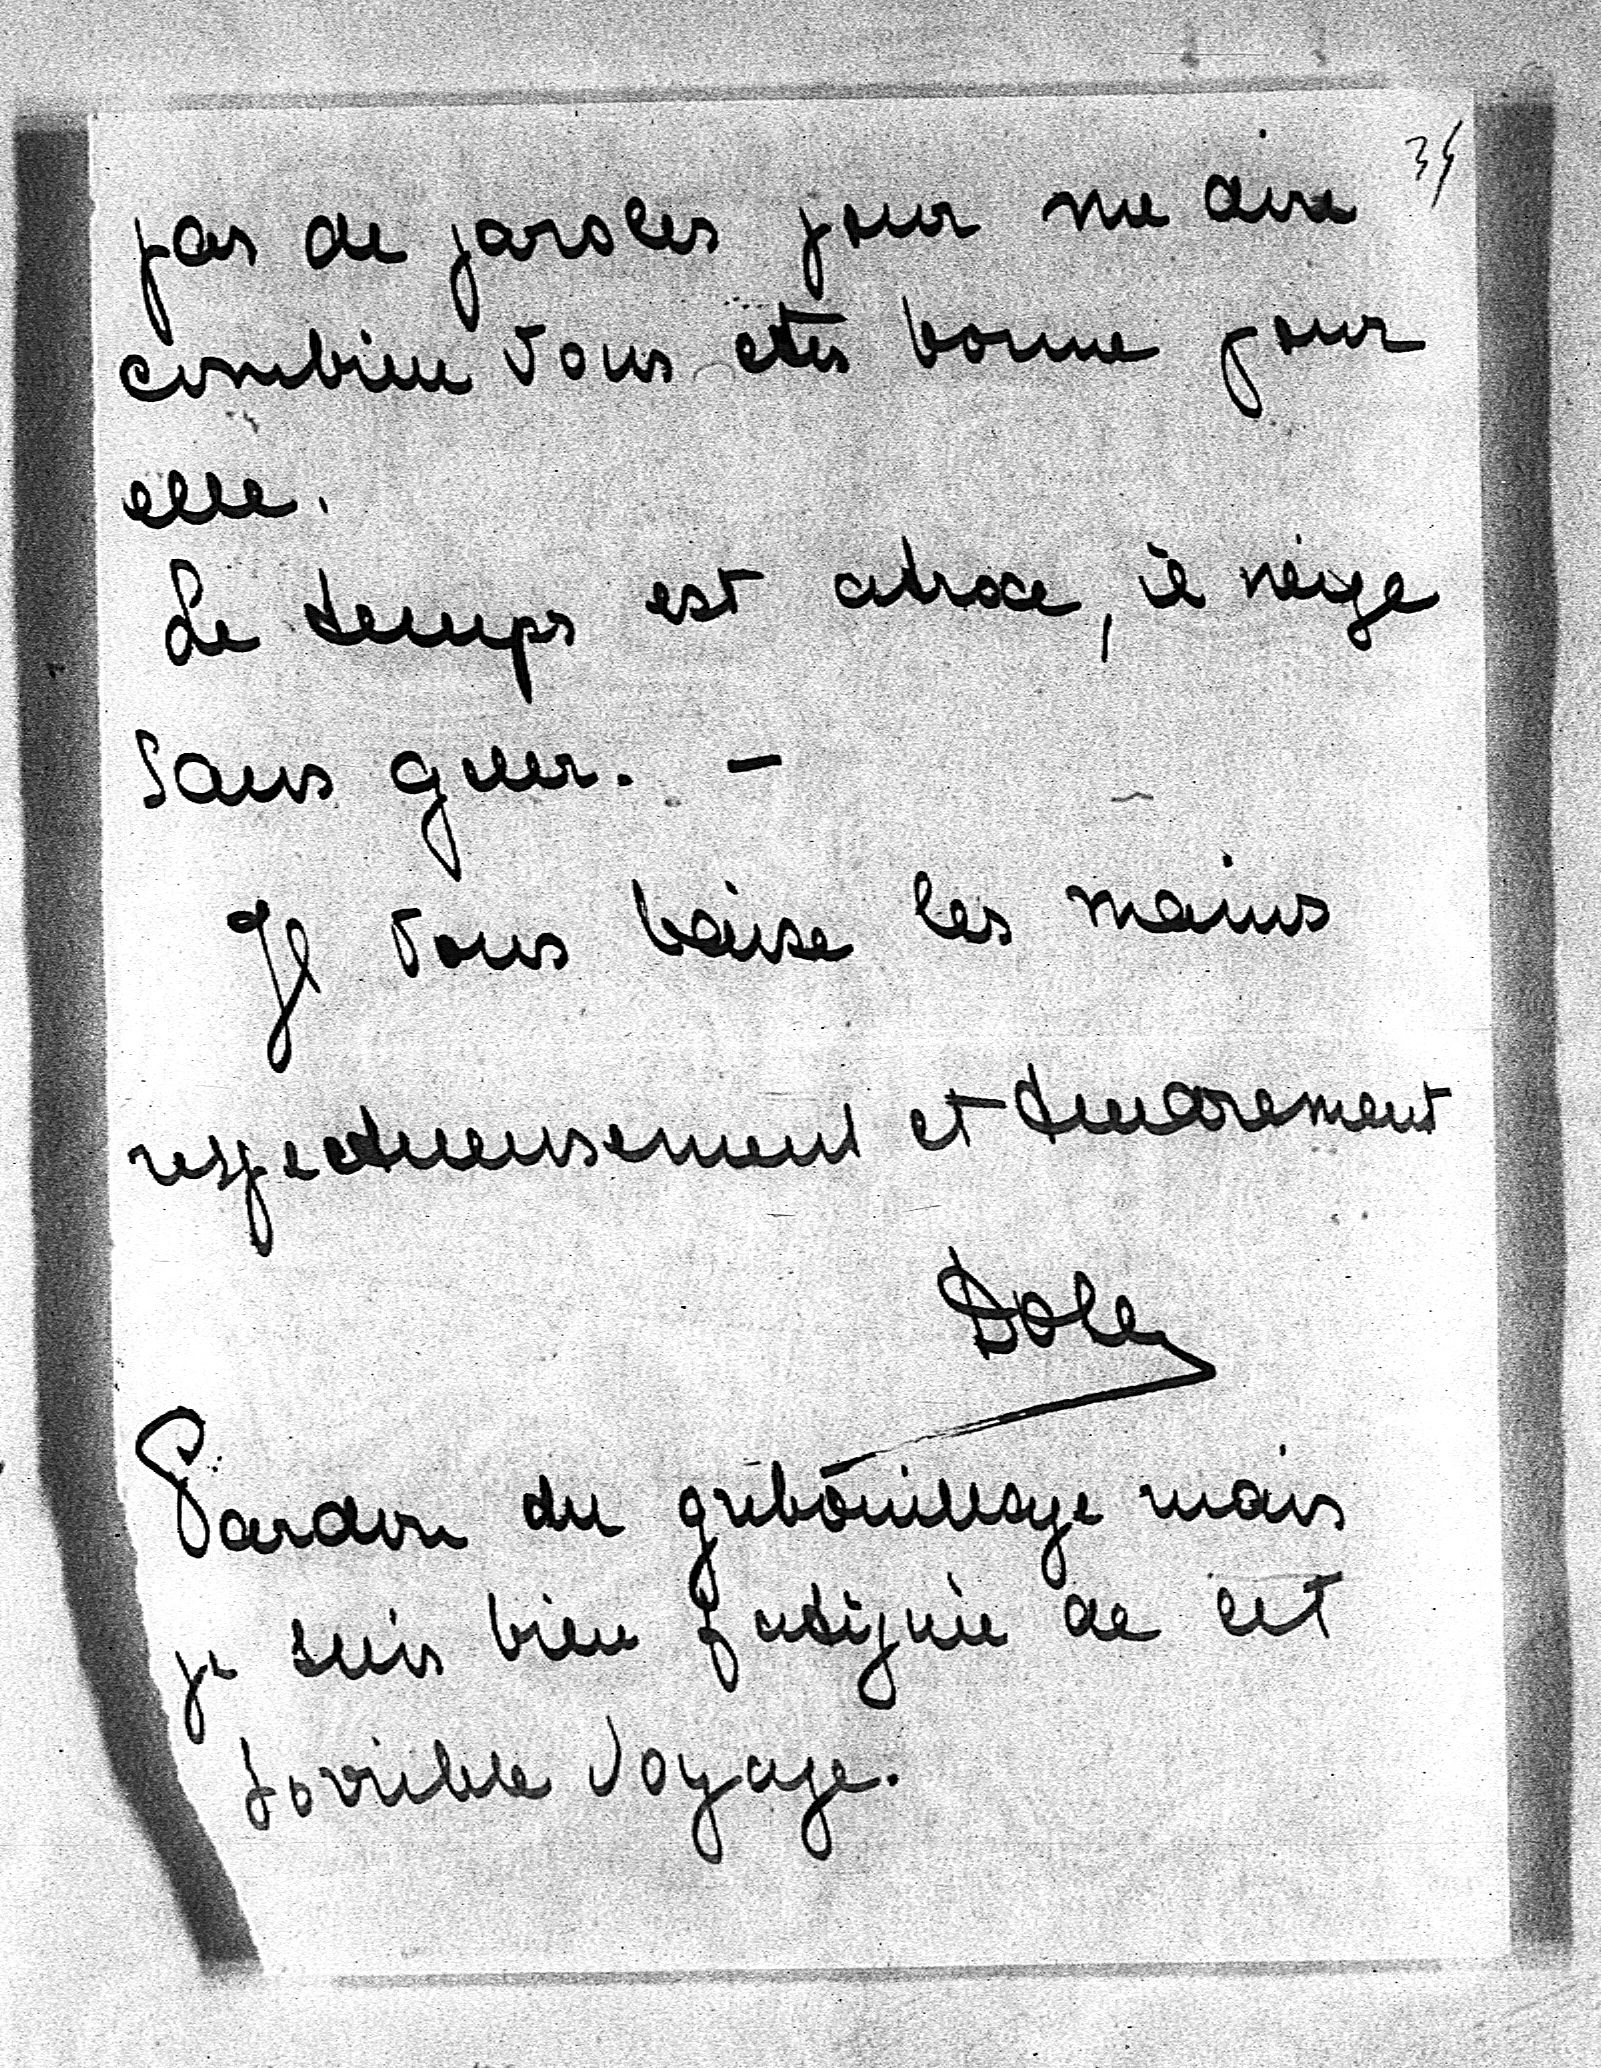 34
pas de paroles pour me dire
combien vous êtes bonne pour
elle.
Le temps est atroce, il neige
sans
Je vous baise les mains
respectueusement et tendrement
Dole
Pardon du gribouillage mais
je suis bien fatiguée de cet
horrible voyage.